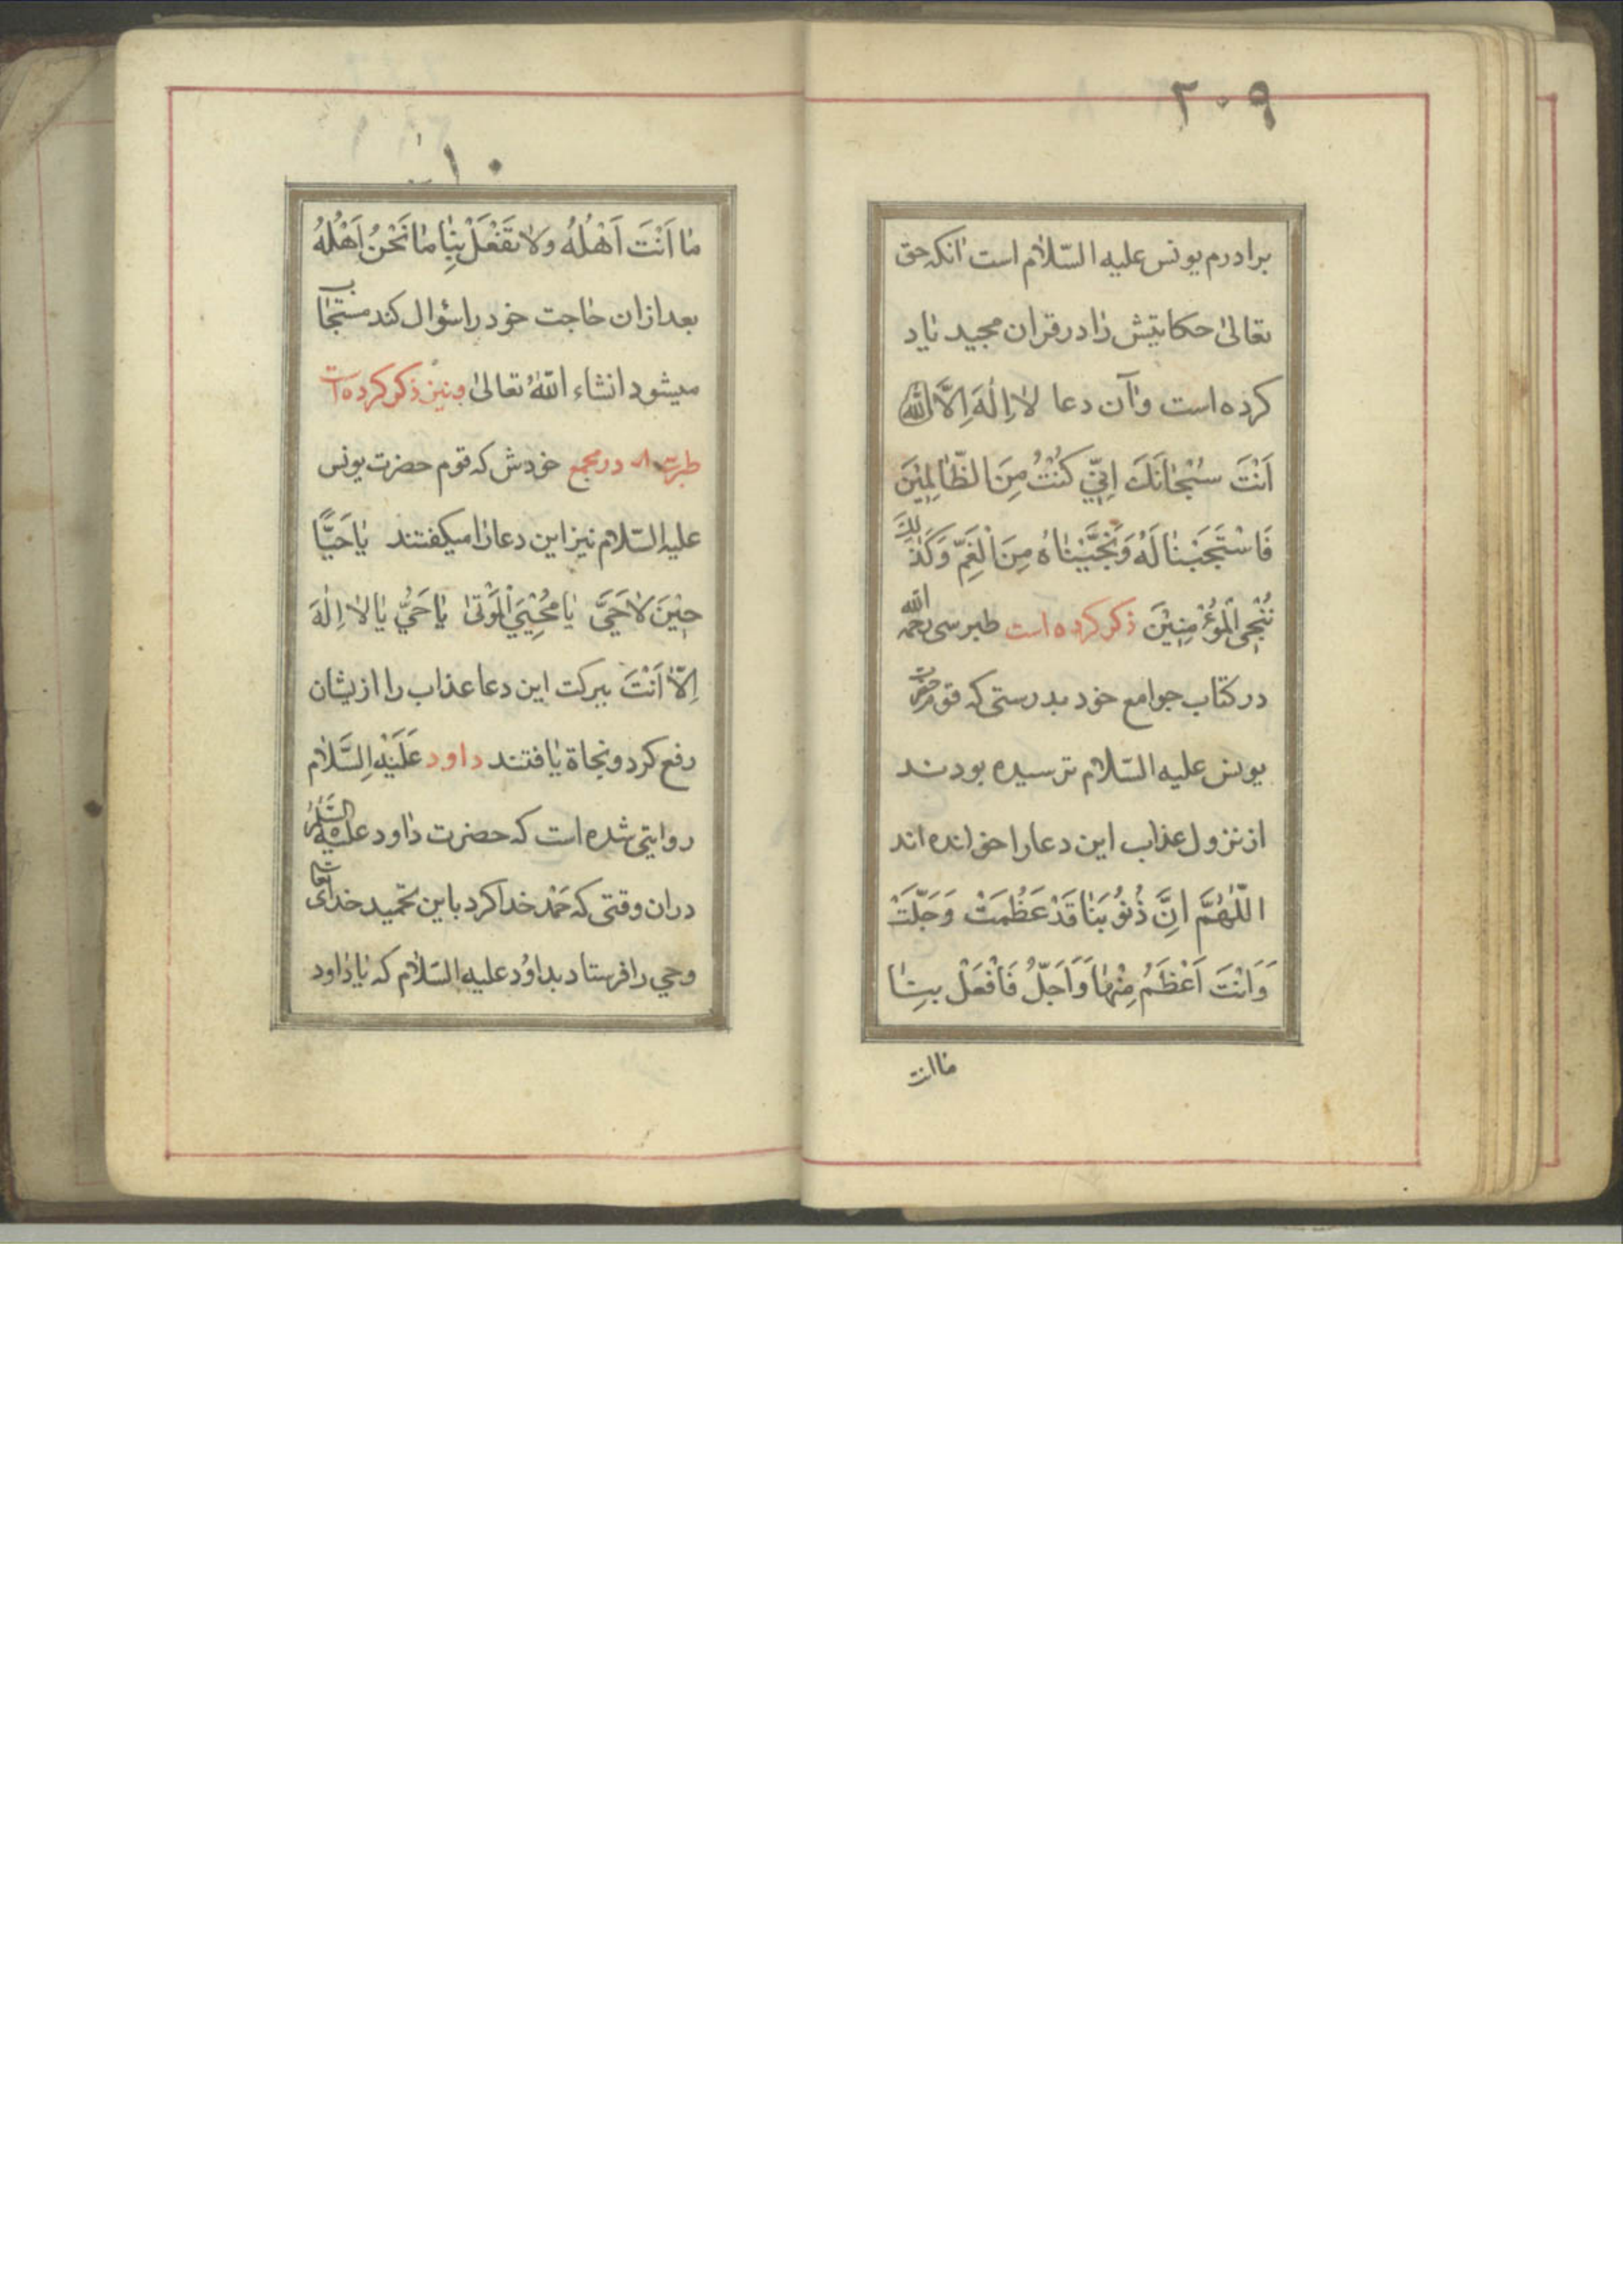 ٢٠٩
برادرم یونس علیه السّلام است انکه حق
تعالیٰ حکایتیش را در قران مجید یاد
کرده است و آن دعا لا اِلٰهَ اِلَّا اللّٰه
اَنْتَ سُبْحٰانَكَ اِنّی كُنْتُ مِنَ الظّٰالِمِیْنَ
فَاسْتَجَبْنٰا لَهُ وَنَجَّیْنٰاهُ مِنَ الْغَمِّ وَكَذٰلِكَ
نُنْجِی الْمُؤْمِنِیْنَ ذکر کرده است طبرسی رحمه الله
در کتاب جوامع خود بدرستی که قوم حضرت
یونس علیه السّلام ترسیده بودند
از نزول عذاب این دعا را خوانده اند
اللّٰهُمَّ اِنَّ ذُنُوْبَنٰا قَدْ عَظُمَتْ وَجَلَّتْ
وَاَنْتَ اَعْظَمُ مِنْهٰا وَاَجَلُّ فَافْعَلْ بِنٰا
ماانت
مٰا اَنْتَ اَهْلُهُ وَلاٰ تَفْعَلْ بِنٰا مٰا نَحْنُ اَهْلُهُ
بعد ازان حاجت خود را سؤال کند مستجاب
میشود انشاء اللّٰهُ تعالیٰ ذکر کرده است
در مجمع خودش که قوم حضرت یونس
علیه السّلام نیز این دعا را میکفتند یٰا حَیًّا
حِیْنَ لاٰ حَیَّ یٰا مُحْیِیَ الْمَوْتیٰ یٰا حَیُّ یٰا لاٰ اِلٰهَ
اِلّاٰ اَنْتَ ببرکت این دعا عذاب را ازیشان
رفع کرد و نجاة یافتند داود عَلَیْهِ السَّلاٰم
روایتی شده است که حضرت داود علیه السَّلٰم
دران وقتی که حَمْد خدا کرد باین تحمید خدای تعالی
وحی را فرستاد بداوُد علیه السّلام که یا داود